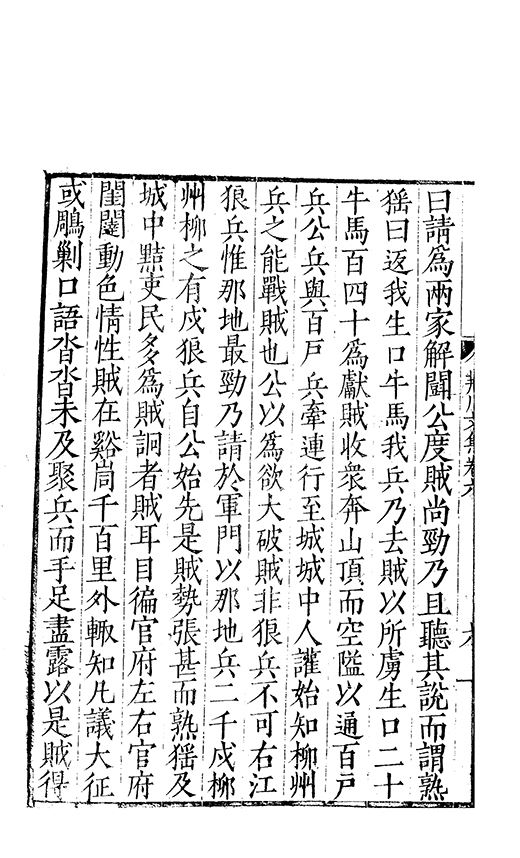 曰請爲兩家解鬬公度賊尚勁乃且聽其說而謂熟
猺曰返我生口牛馬我兵乃去賊以所虜生口二十
牛馬百四十爲獻賊收衆奔山頂而空隘以通百戸
兵公兵與百戸兵牽連行至城城中人讙始知柳州
兵之能戰賊也公以爲欲大破賊非狼兵不可右江
狼兵惟那地最勁乃請於軍門以那地兵二千戍柳
州柳之有戍狼兵自公始先是賊勢張甚而熟猺及
城中黠吏民多爲賊詗者賊耳目徧官府左右官府
閨闥動色情性賊在谿峝千百里外輙知凡議大征
或鵰剿口語沓沓未及聚兵而手足盡露以是賊得
荆川文集卷六